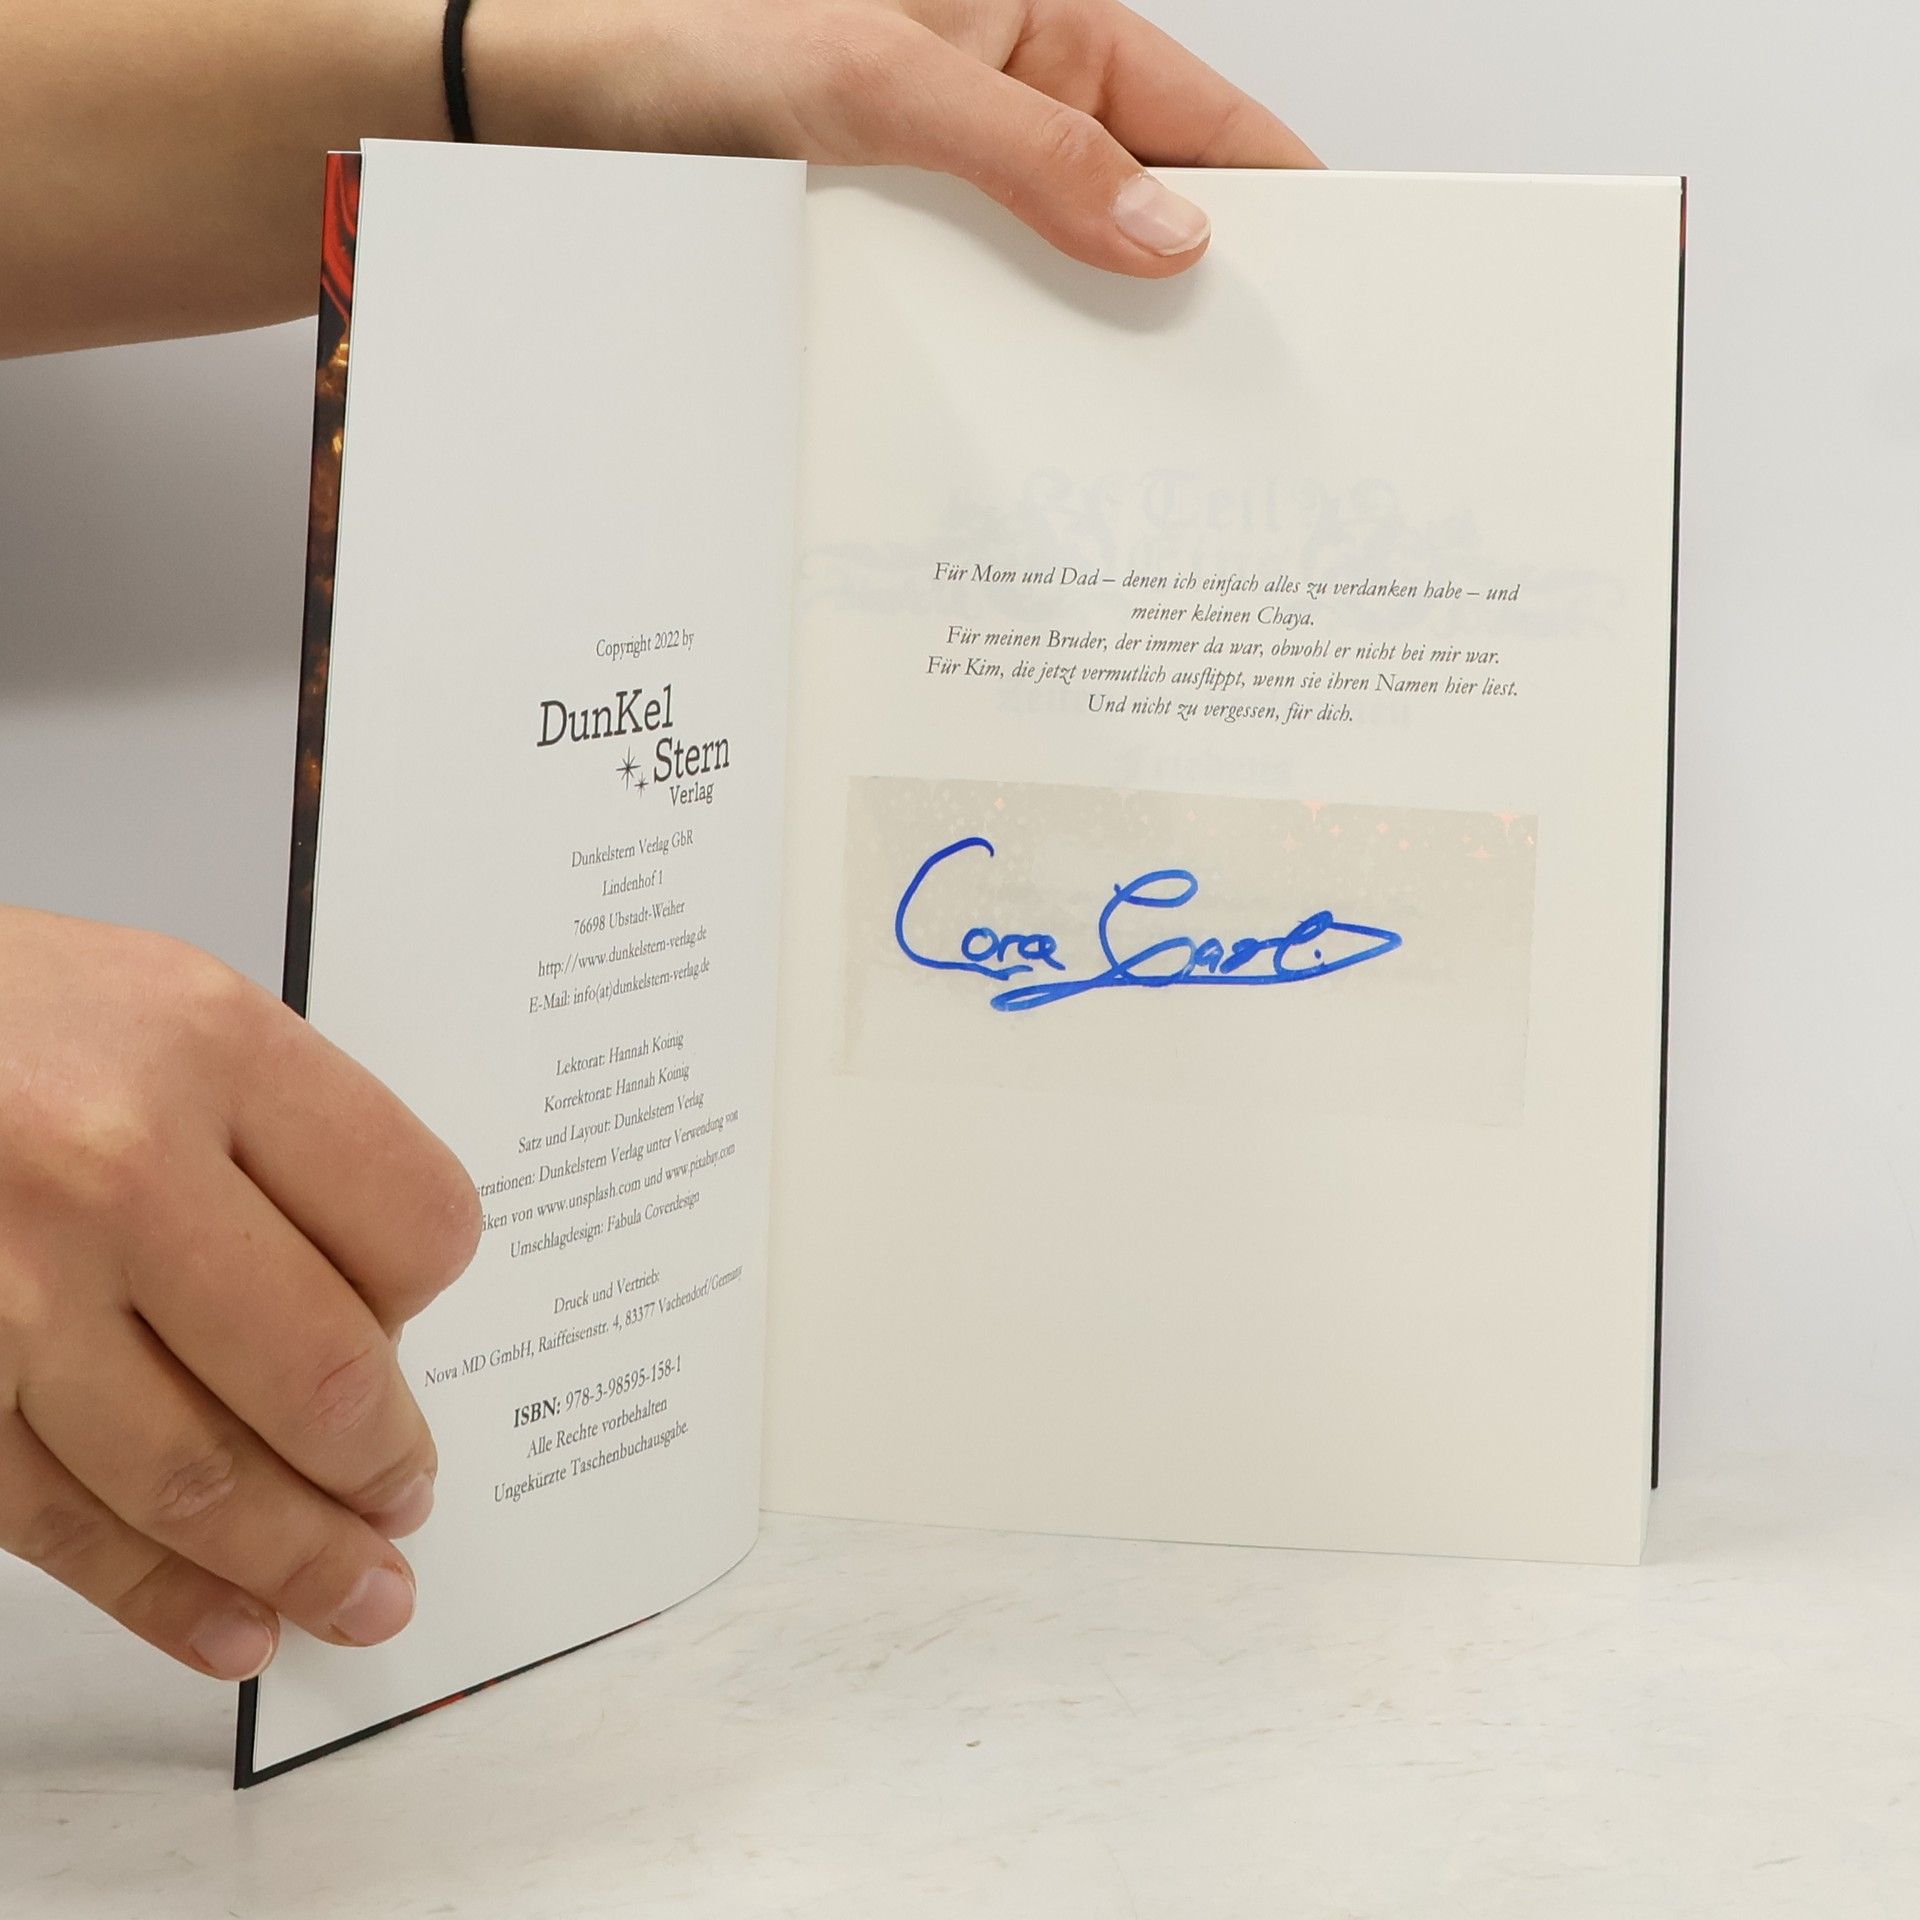 Copyright 2022 by
DunKel
Stern
Verlag
Dunkelstern Verlag GbR
Lindenhof 1
76698 Ubstadt-Weiher
http://www.dunkelstern-verlag.de
E-Mail: info(at)dunkelstern-verlag.de
Lektorat: Hannah Koinig
Korrektorat: Hannah Koinig
Satz und Layout: Dunkelstern Verlag
strationen: Dunkelstern Verlag unter Verwendung von
iken von www.unsplash.com und www.pixabay.com
Umschlagdesign: Fabula Coverdesign
Druck und Vertrieb:
Nova MD GmbH, Raiffeisenstr. 4, 83377 Vachendorf/Germany
ISBN: 978-3-98595-158-1
Alle Rechte vorbehalten
Ungekürzte Taschenbuchausgabe.
Für Mom und Dad – denen ich einfach alles zu verdanken habe – und
meiner kleinen Chaya.
Für meinen Bruder, der immer da war, obwohl er nicht bei mir war.
Für Kim, die jetzt vermutlich ausflippt, wenn sie ihren Namen hier liest.
Und nicht zu vergessen, für dich.
Cora